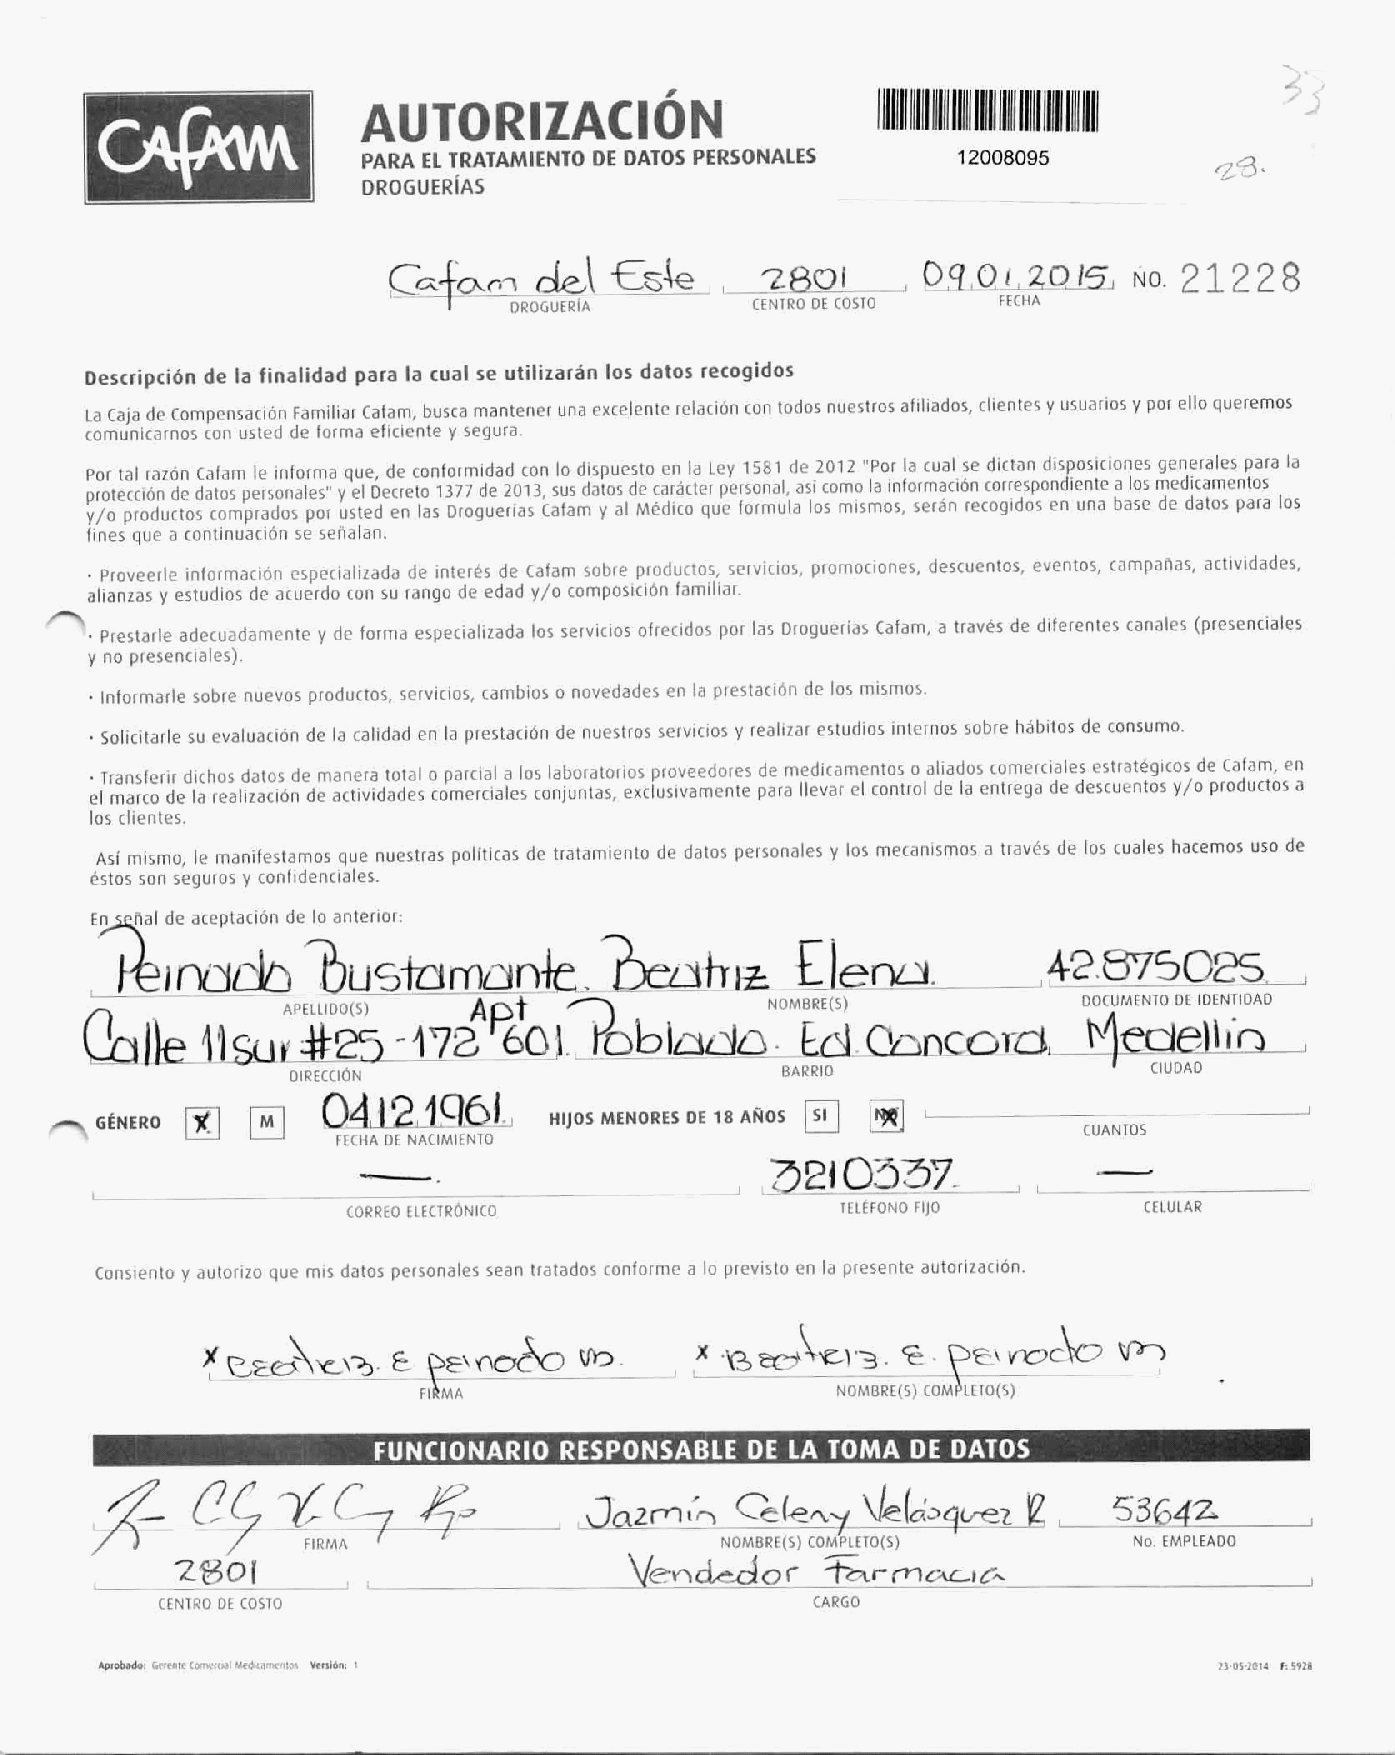 33
CAFAM
AUTORIZACIÓN
PARA EL TRATAMIENTO DE DATOS PERSONALES
DROGUERÍAS
12008095
28.
Cafam del Este 2801 09.01.2015 NO. 21228
DROGUERÍA CENTRO DE COSTO FECHA
Descripción de la finalidad para la cual se utilizarán los datos recogidos
La Caja de Compensación Familiar Cafam, busca mantener una excelente relación con todos nuestros afiliados, clientes y usuarios y por ello queremos
comunicarnos con usted de forma eficiente y segura.
Por tal razón Cafam le informa que, de conformidad con lo dispuesto en la Ley 1581 de 2012 "Por la cual se dictan disposiciones generales para la
protección de datos personales" y el Decreto 1377 de 2013, sus datos de carácter personal, así como la información correspondiente a los medicamentos
y/o productos comprados por usted en las Droguerías Cafam y al Médico que formula los mismos, serán recogidos en una base de datos para los
fines que a continuación se señalan.
· Proveerle información especializada de interés de Cafam sobre productos, servicios, promociones, descuentos, eventos, campañas, actividades,
alianzas y estudios de acuerdo con su rango de edad y/o composición familiar.
· Prestarle adecuadamente y de forma especializada los servicios ofrecidos por las Droguerías Cafam, a través de diferentes canales (presenciales
y no presenciales).
· Informarle sobre nuevos productos, servicios, cambios o novedades en la prestación de los mismos.
· Solicitarle su evaluación de la calidad en la prestación de nuestros servicios y realizar estudios internos sobre hábitos de consumo.
· Transferir dichos datos de manera total o parcial a los laboratorios proveedores de medicamentos o aliados comerciales estratégicos de Cafam, en
el marco de la realización de actividades comerciales conjuntas, exclusivamente para llevar el control de la entrega de descuentos y/o productos a
los clientes.
Así mismo, le manifestamos que nuestras políticas de tratamiento de datos personales y los mecanismos a través de los cuales hacemos uso de
éstos son seguros y confidenciales.
En señal de aceptación de lo anterior:
Peinado Bustamante. Beatriz Elena. 42.875025
APELLIDO(S) NOMBRE(S) DOCUMENTO DE IDENTIDAD
Calle 11sur #25-172 Apt 601. Poblado. Ed. Concord Medellin
DIRECCIÓN BARRIO CIUDAD
GÉNERO X M 04121961 HIJOS MENORES DE 18 AÑOS SI NO
FECHA DE NACIMIENTO CUANTOS
— 3210337 —
CORREO ELECTRÓNICO TELÉFONO FIJO CELULAR
Consiento y autorizo que mis datos personales sean tratados conforme a lo previsto en la presente autorización.
x Beatriz. E peinado x Beatriz. E. peinado
FIRMA NOMBRE(S) COMPLETO(S)
FUNCIONARIO RESPONSABLE DE LA TOMA DE DATOS
Jazmín Celeny Velásquez R 53642
FIRMA NOMBRE(S) COMPLETO(S) No. EMPLEADO
2801 Vendedor Farmacia
CENTRO DE COSTO CARGO
Aprobado: Gerente Comercial Medicamentos Versión: 1 23-05-2014 F: 5928